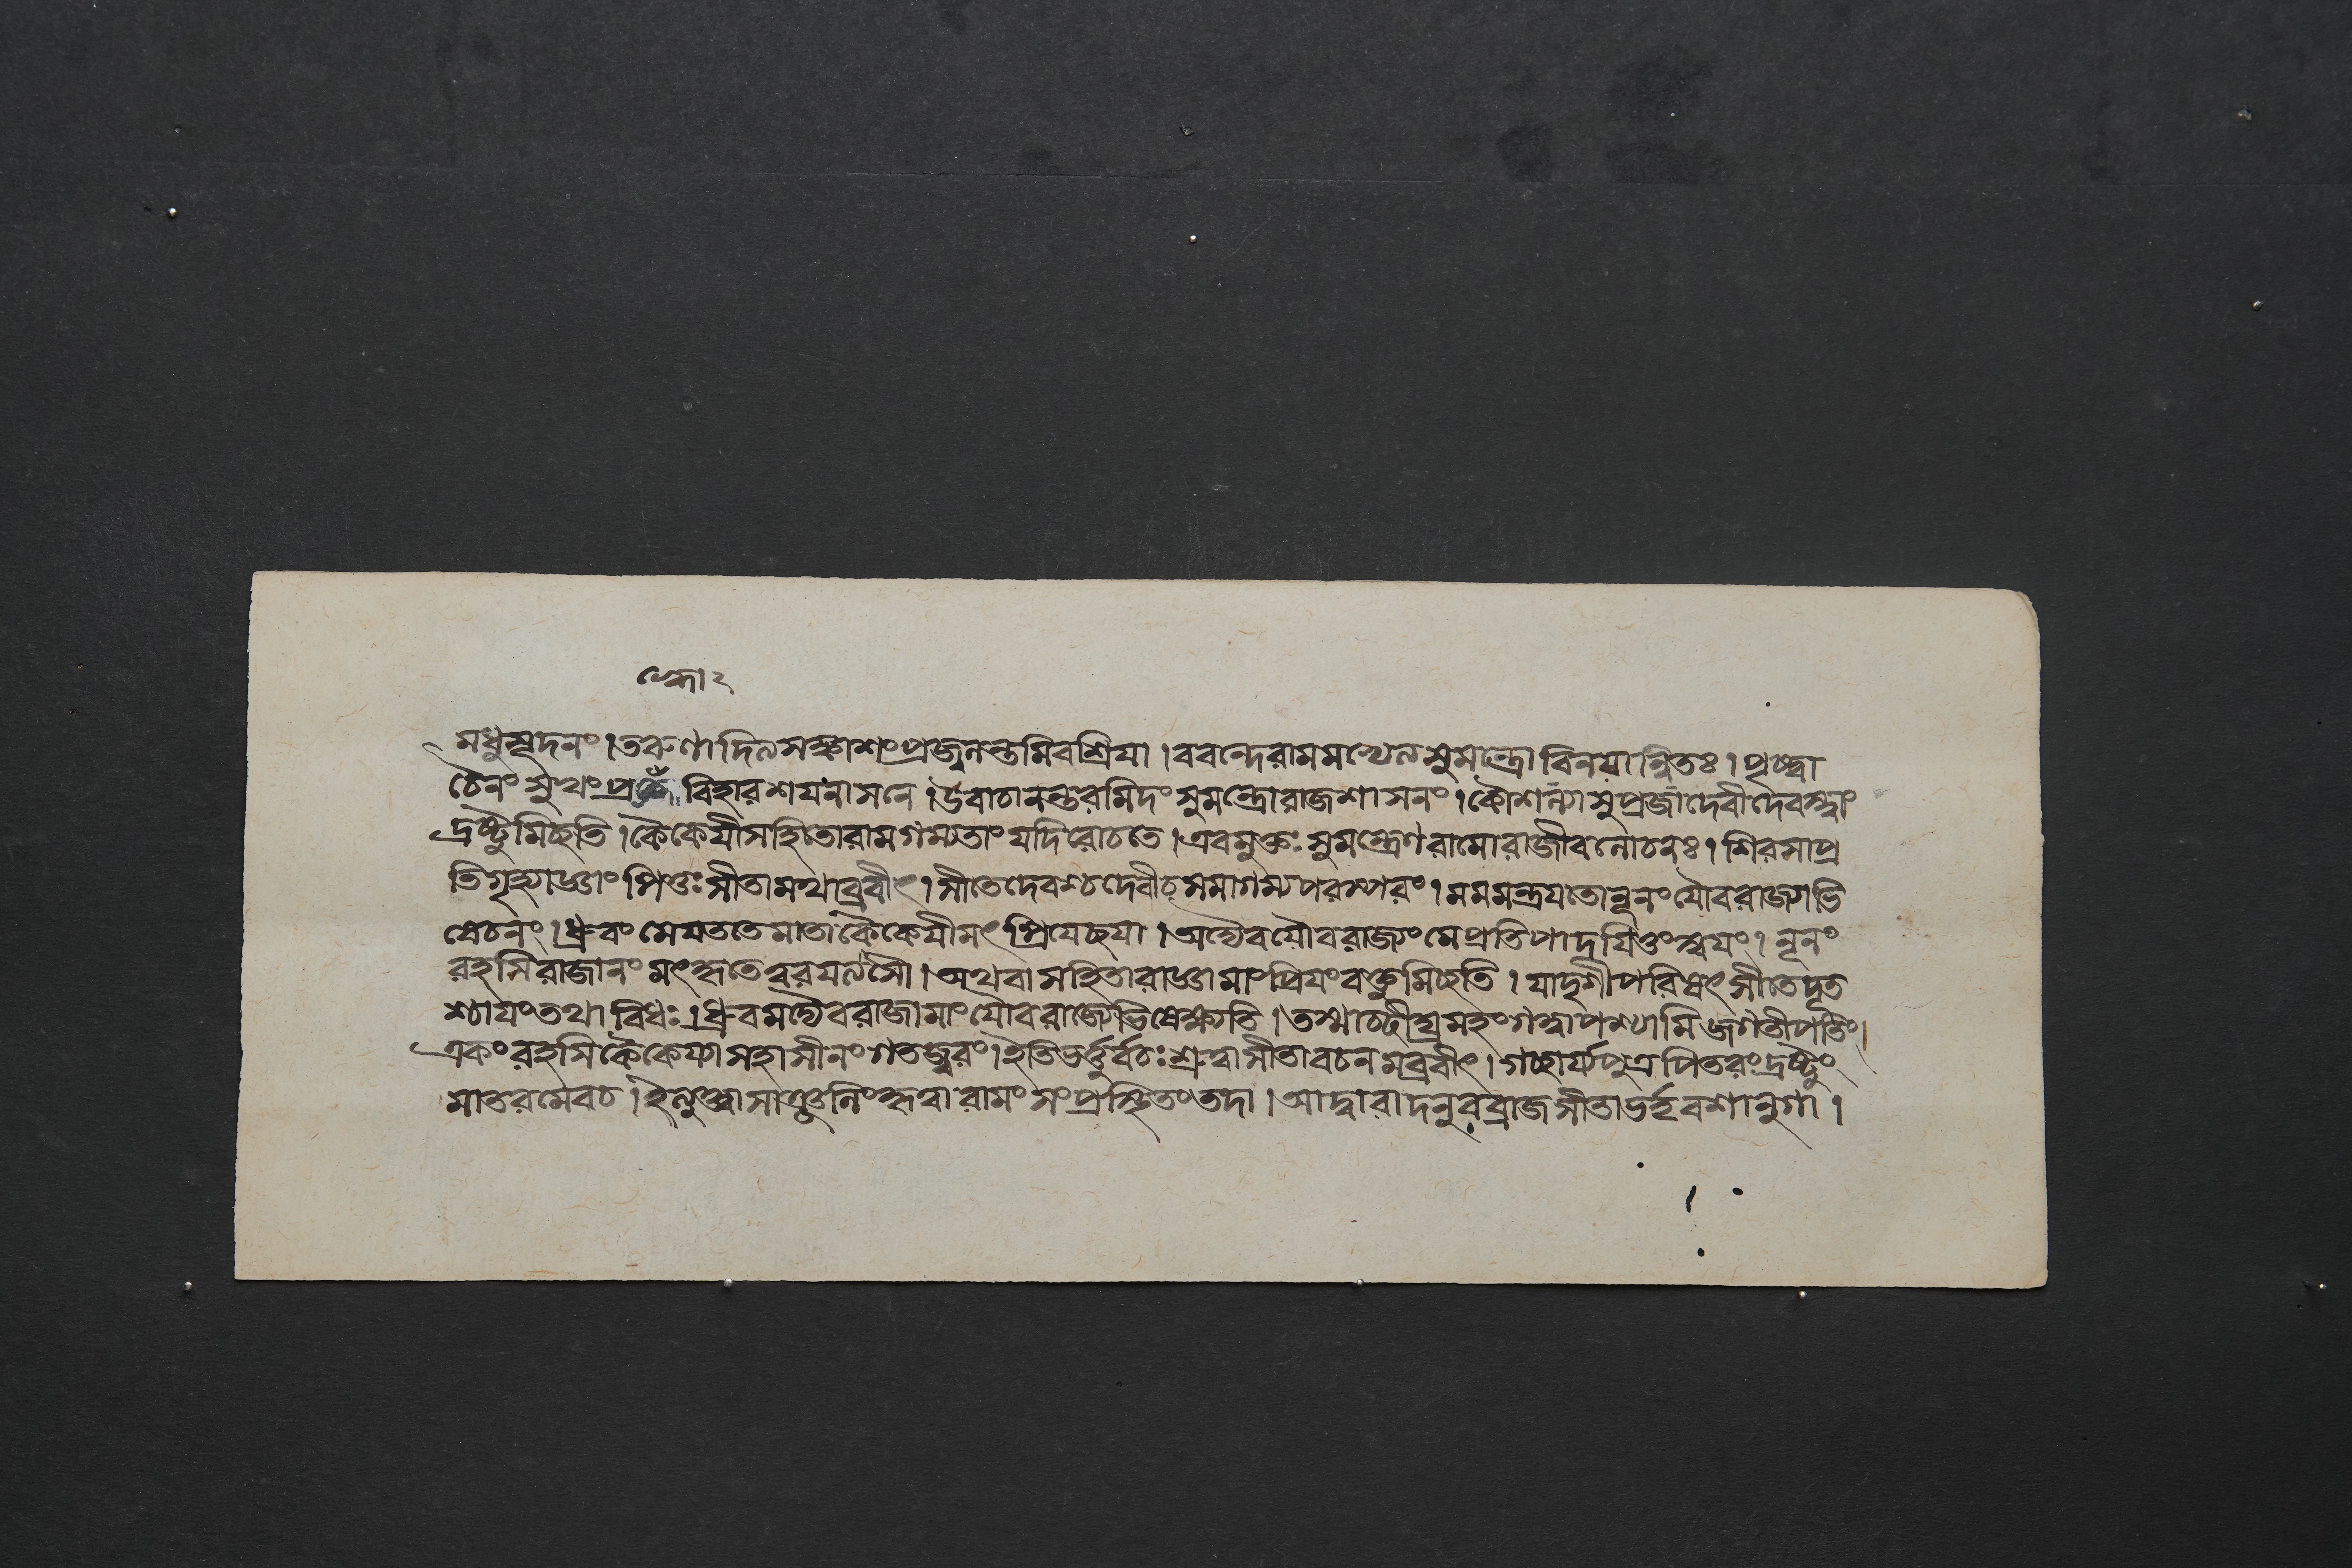 মধুসূদনং। তরুণাদিত্যসঙ্কাশং প্রজ্বলন্তমিব শ্রিয়া। ববন্দে রামমভ্যেত্য সুমন্ত্রো বিনয়ান্বিতঃ। পৃষ্ট্বা
চৈনং সুখং বিহারশয়নাসনে। উবাচানন্তরমিদং সুমন্ত্রো রাজশাসনং। কৌশল্যা সুপ্রজা দেবী দেবস্ত্বাং
দ্রষ্টুমিচ্ছতি। কৈকেয়ীসহিতো রাম গম্যতাং যদি রোচতে। এবমুক্তঃ সুমন্ত্রেণ রামো রাজীবলোচনঃ। শিরসা প্র
তিগৃহ্যাজ্ঞাং পিতুঃ সীতামথাব্রবীৎ। সীতে দেবশ্চ দেবী চ সমাগম্য পরস্পরং। মম মন্ত্রয়তো নূনং যৌবরাজ্যাভি
ষেচনং। ধ্রুবং মে যততে মাতা কৈকেয়ী মৎপ্রিয়েচ্ছয়া। অদ্যৈব যৌবরাজ্যং মে প্রতিপাদয়িতুং স্বয়ং। নূনং
রহসি রাজানং মৎকৃতে ত্বরয়ত্যসৌ। অথবা সহিতা রাজ্ঞা মাং প্রিয়ং বক্তুমিচ্ছতি। যাদৃশী পরিষৎ সীতে দূত
শ্চায়ং তথাবিধঃ। ধ্রুবমদ্যৈব রাজা মাং যৌবরাজ্যেভিষেক্ষ্যতি। তস্মাচ্ছীঘ্রমহং গত্বা পশ্যামি জগতীপতিং।
একং রহসি কৈকেয্যা সহাসীনং গতজ্বরং। ইতি ভর্ত্তুর্বচঃ শ্রুত্বা সীতা বচনমব্রবীৎ। গচ্ছার্য্যপুত্র পিতরং দ্রষ্টুং
মাতরমেব চ। ইত্যুক্ত্বা সাঞ্জলিং কৃত্বা রামং সংপ্রস্থিতং তদা। আদ্বারাদনুবব্রাজ সীতা ভর্তৃবশানুগা।